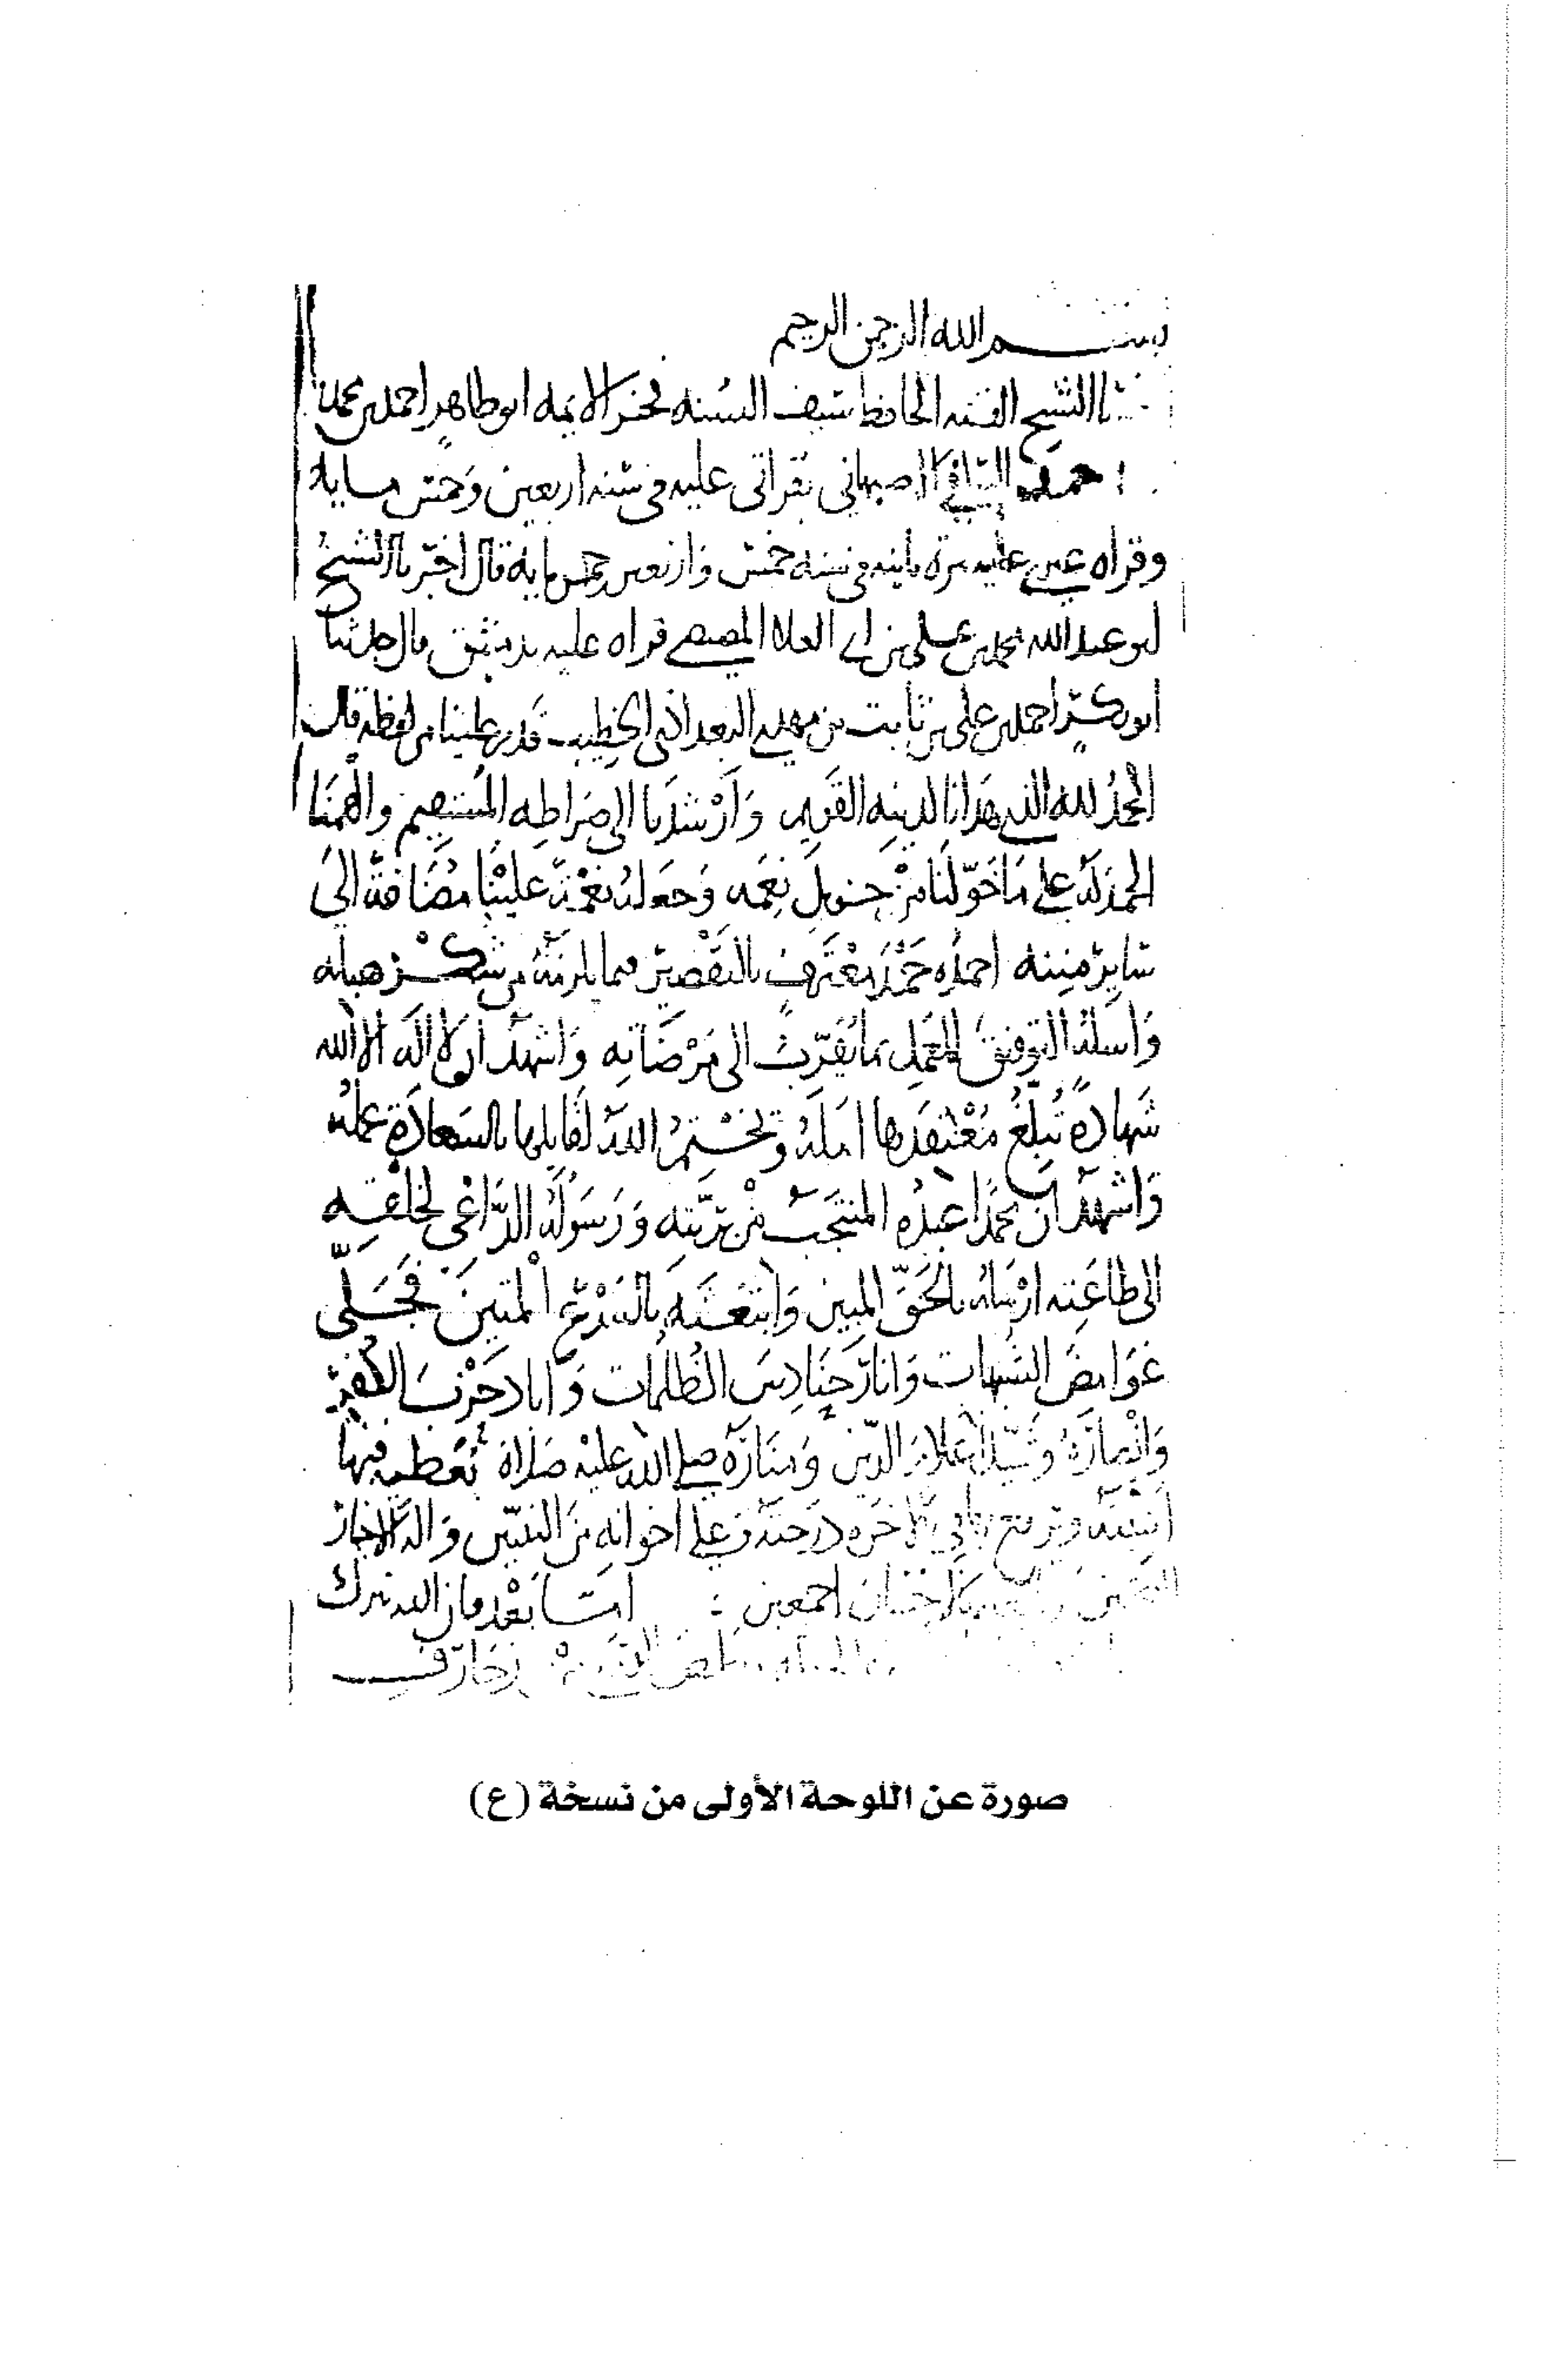 بسم الله الرحمن الرحيم
الشيخ الفقيه الحافظ سيف السنه فخر الايمه ابو طاهر احمد بن محمد بن
احمد السلفي الاصبهاني بقراتي عليه في سنه اربعين وخمس مايه
وقراه عليه مرة ثانيه في سنه خمس واربعين وخمس مايه قال اخبرنا الشيخ
ابو عبد الله محمد بن علي بن ابي العلا المصيصي قراه عليه بدمشق قال حدثنا
ابو بكر احمد بن علي بن ثابت بن مهدي البغداذي الخطيب علينا من لفظه قال
الحمد لله الذي هدانا لدينه القويم وَارْشدنا الى صَراطِه المُستقيم والْهمَنَا
الحمد لَه على مَا خَوّلنَا مِنْ جزيلِ نِعَمه وَجعله نعْمَةً علَيْنَا مُضَافَةً الىَ
سَايِر مِننه احمدُه حَمْدَ معْترِف بالتقْصِير فيما يلزمُهُ من شكْر هباته
وَاسله التوفيقَ للعمَلِ بما يُقرّبُ الى مَرْضَاتِه وَاشهدُ ان لا اله الا الله
شَهادةً تُبلغُ مُعْتقدَها املَهُ وَتخْتِمُ اللهُ لقَايلِها بالسَعادَةِ عمله
وَاشهدُ ان محمدًا عبدُه المنتجَبُ مِنْ بَرِيّتِه وَرَسُولُهُ الدَّاعي لخلقِه
الى طاعَتِه ارْسَلهُ بالحَقّ المبين وَابْتعَثَه بالشرْعِ المتين فجَلَّى
غَوَامِضَ الشبهات وَانارَ حَنَادِسَ الظُلمات وَابادَ حَزْبَ الكُفر
وَانْصارَهُ وَشيّدَ اعلامَ الدّين وَمنَارَه صلى الله عليه صَلاةً تعظم فيها
في الاخرَة دَرجته وَعلى اخوانه مِنَ النبيّين وَاله الاخيار
باحسان اجمعين : امّا بَعْد فان الله تبرك
زخارف
صورة عن اللوحة الأولى من نسخة (ع)